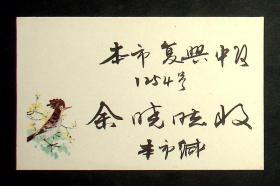 本市复兴中路
1254号
余晓晓收
本市缄